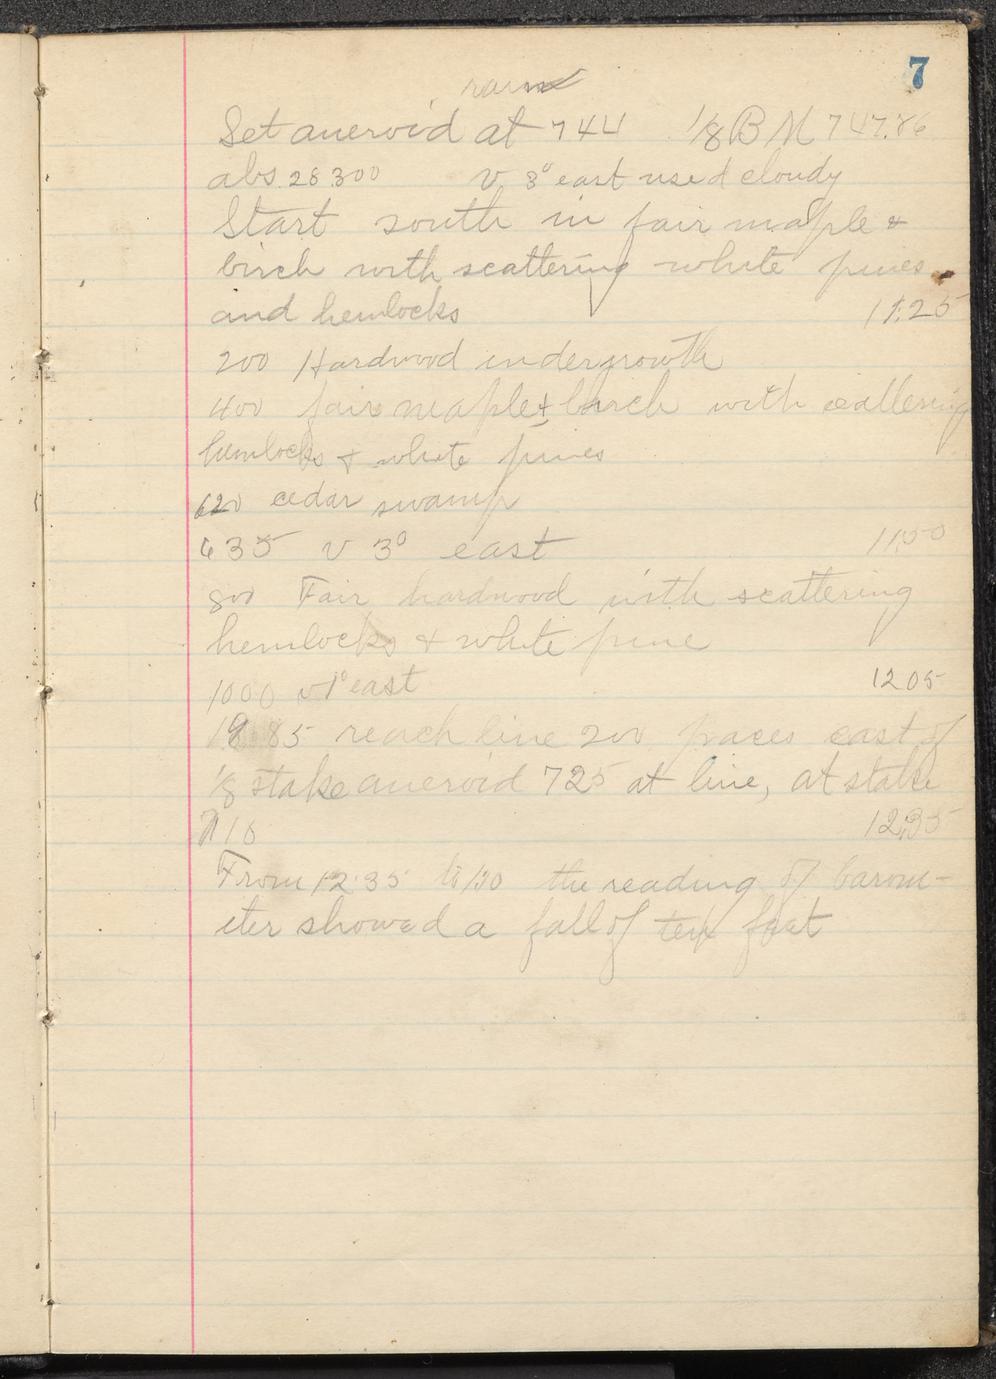 7
Set aneroid at 744 1/8 B M 747.86
abs. 28.300 v 3° east used cloudy
Start south in fair maple &
birch with scattering white pines
and hemlocks 11:25
200 Hardwood undergrowth
400 fair maple & birch with scattering
hemlocks & white pines
620 cedar swamp
635 v 3° east 11:50
800 Fair hardwood with scattering
hemlocks & white pine
1000 v 1° east 12 05
1985 reach line 200 paces east of
1/8 stake aneroid 725 at line, at stake
716 12:35
From 12:35 to 1:30 the reading of barom-
iter showed a fall of ten feet